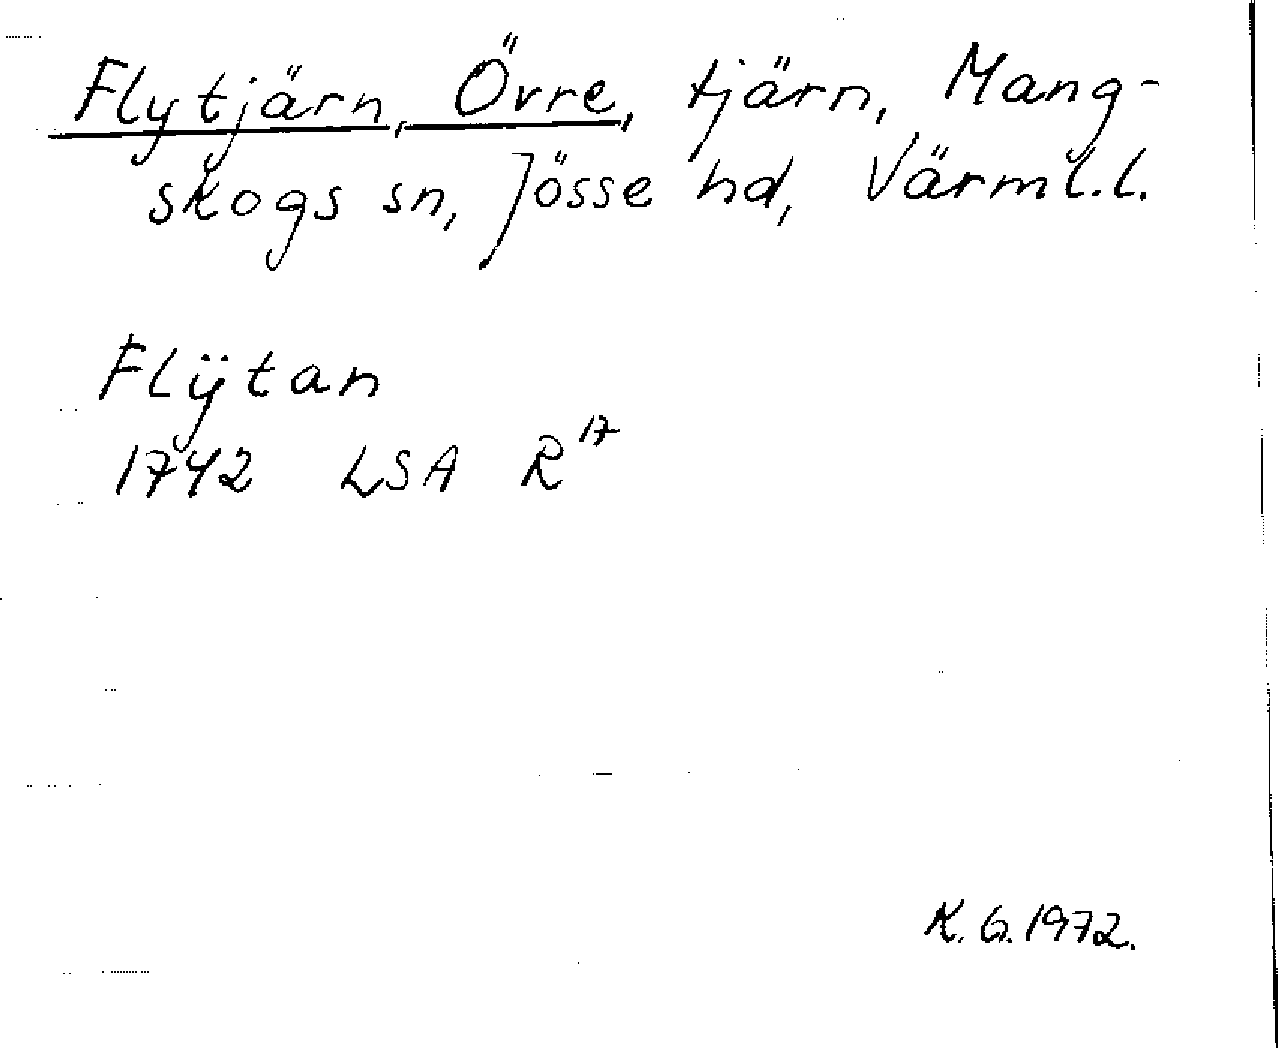 Flytjärn, Övre, tjärn, Mang-
skogs sn, Jösse hd, Värml.l.
Flÿtan
1742 LSA R17
K.G.1972.